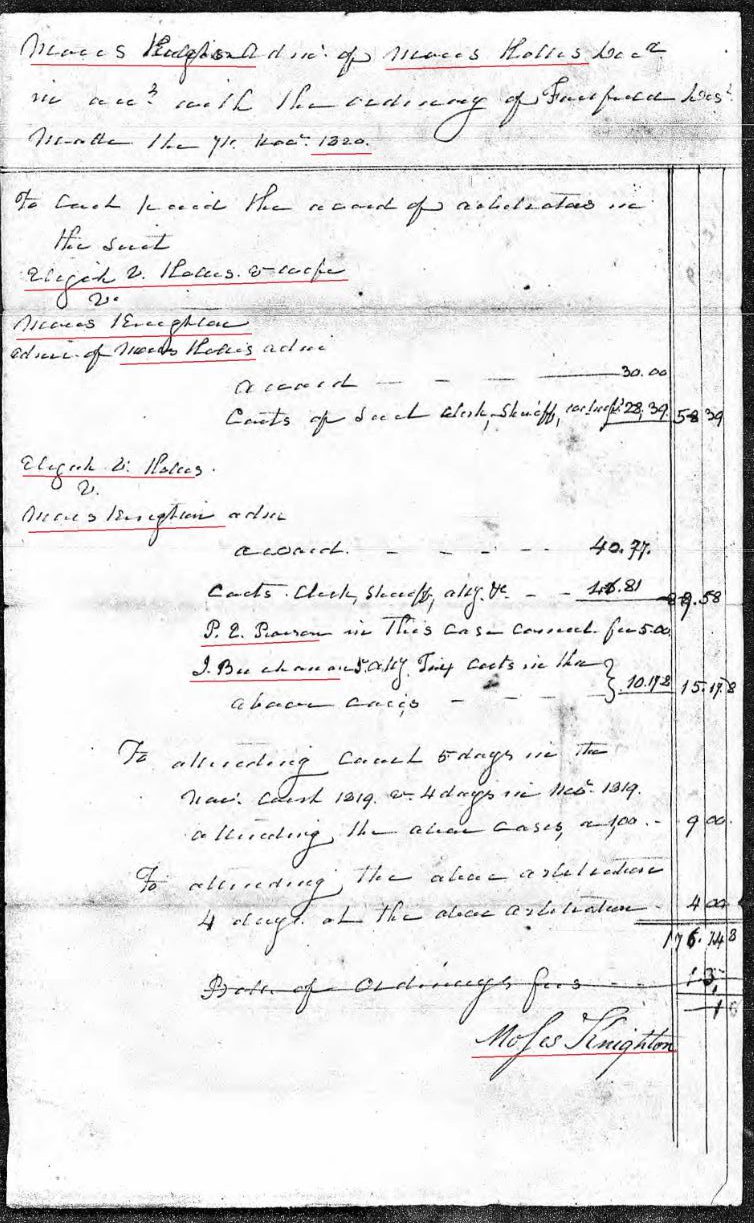 Moses Knighton Adm. of Moses Hollis Decd
in acct with the ordinary of Fairfield Dist
Made the 7th Decr. 1820.
To Cash paid the award of arbitrators in
the suit
Elijah V. Hollis & wife
V.
Moses Knighton
admr. of Moses Hollis admr
award - - - 30.00
Costs of suit Clerk, Sheriff, 28,39 58 39
Elijah V. Hollis.
V.
Moses Knighton admr
award. - - - - 40.77.
Costs Clerk, Sheriff, atty. &c - - .81 .58
P. E. Pearson in this case counsel fee 5.00
J. Buchanan atty. costs in the
above cases - - - 10.178 15.178
To attending Court 5 days in the
Court 1819. & 4 days in 1819.
attending the above cases, a 1,00. - 9 00.
To attending the above arbitration
4 days at the above arbitration - 4 00
176.748
of Ordinarys fees - -
Moses Knighton